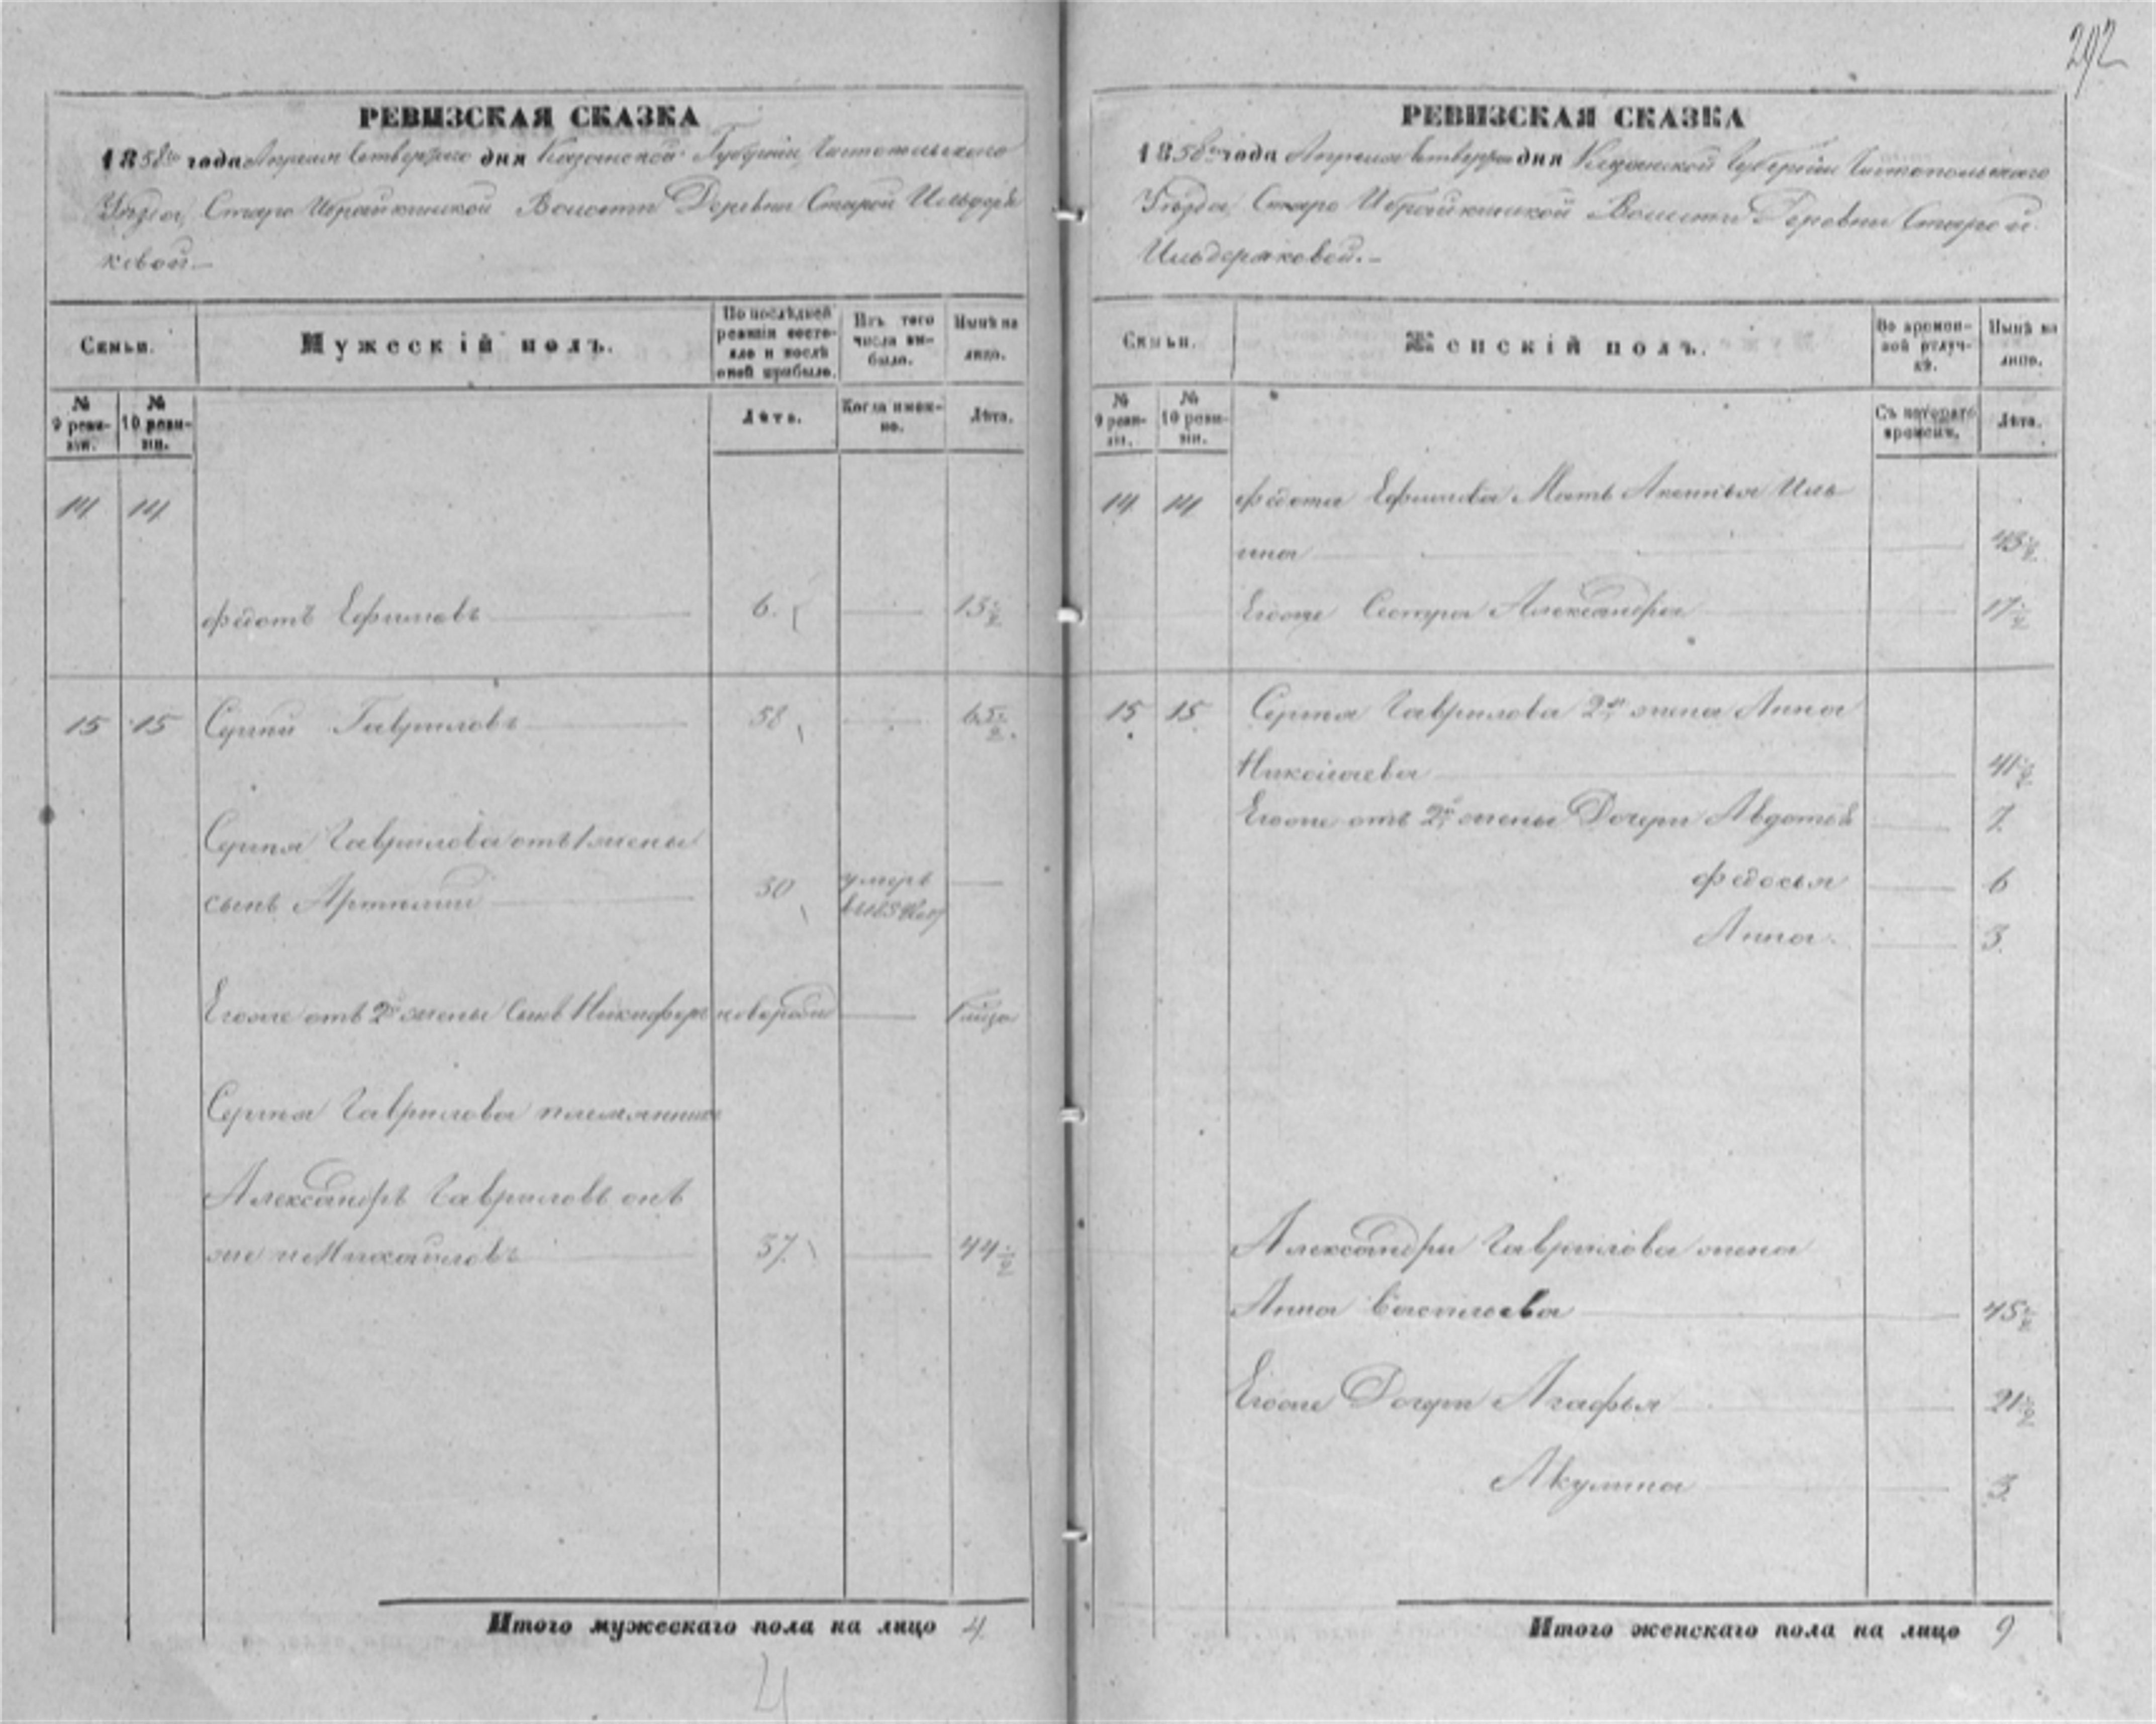 292
РЕВИЗСКАЯ СКАЗКА
1858го года Апреля Четвертаго дня Казанской Губерніи, Чистопольскаго
Уѣзда, Старо Ибрайкинской Волости Деревни Старой Ильдеря
ковой
Семьи.
Мужескій полъ.
По послѣдней ревизіи состояло и послѣ оной прибыло.
Изъ того числа выбыло.
Нынѣ на лицо.
№ 9 ревизіи.
№ 10 ревизіи.
Лѣта.
Когда именно.
Лѣта.
14 14
Федотъ Ефимовъ 6. 15½
15 15 Сергѣй Гавриловъ 58 65½
Сергѣя Гаврилова отъ 1 жены
сынъ Артемій 30 умеръ
Егоже отъ 2й жены сынъ Никифоръ новорожд
Сергѣя Гаврилова племянникъ
Александръ Гавриловъ онъ
же и Михайловъ 37. 44½
Итого мужескаго пола на лицо 4
4
РЕВИЗСКАЯ СКАЗКА
1858го года Апреля Четвертаго дня Казанской Губерніи Чистопольскаго
Уѣзда, Старо Ибрайкинской Волости Деревни Старой
Ильдеряковой.
Семьи.
Женскій полъ.
Во временной отлучкѣ.
Нынѣ на лицо.
№ 9 ревизіи.
№ 10 ревизіи.
Съ котораго времени.
Лѣта.
14 14 Федота Ефимова Мать Аксинья Иль
ина 45½
Егоже Сестра Александра 17½
15 15 Сергѣя Гаврилова 2я жена Анна
Николаева 41½
Егоже отъ 2й жены Дочери Авдотья 7.
Федосья 6
Анна. 3.
Александра Гаврилова жена
Анна Васильева 45½
Егоже Дочери Агафья 21½
Акулина 3.
Итого женскаго пола на лицо 9